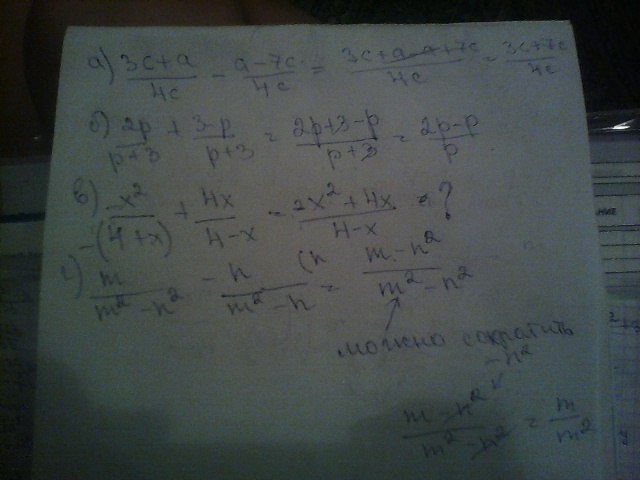 а) (3c+a)/4c - (a-7c)/4c = (3c+a-a+7c)/4c = (3c+7c)/4c
б) 2p/(p+3) + (3-p)/(p+3) = (2p+3-p)/(p+3) = (2p-p)/p
в) x²/-(4+x) + 4x/(4-x) = (2x²+4x)/(4-x) = ?
г) m/(m²-n²) - n/(m²-n) (n = (m-n²)/(m²-n²)
можно сократить
-n²
(m-n²)/(m²-n²) = m/m²